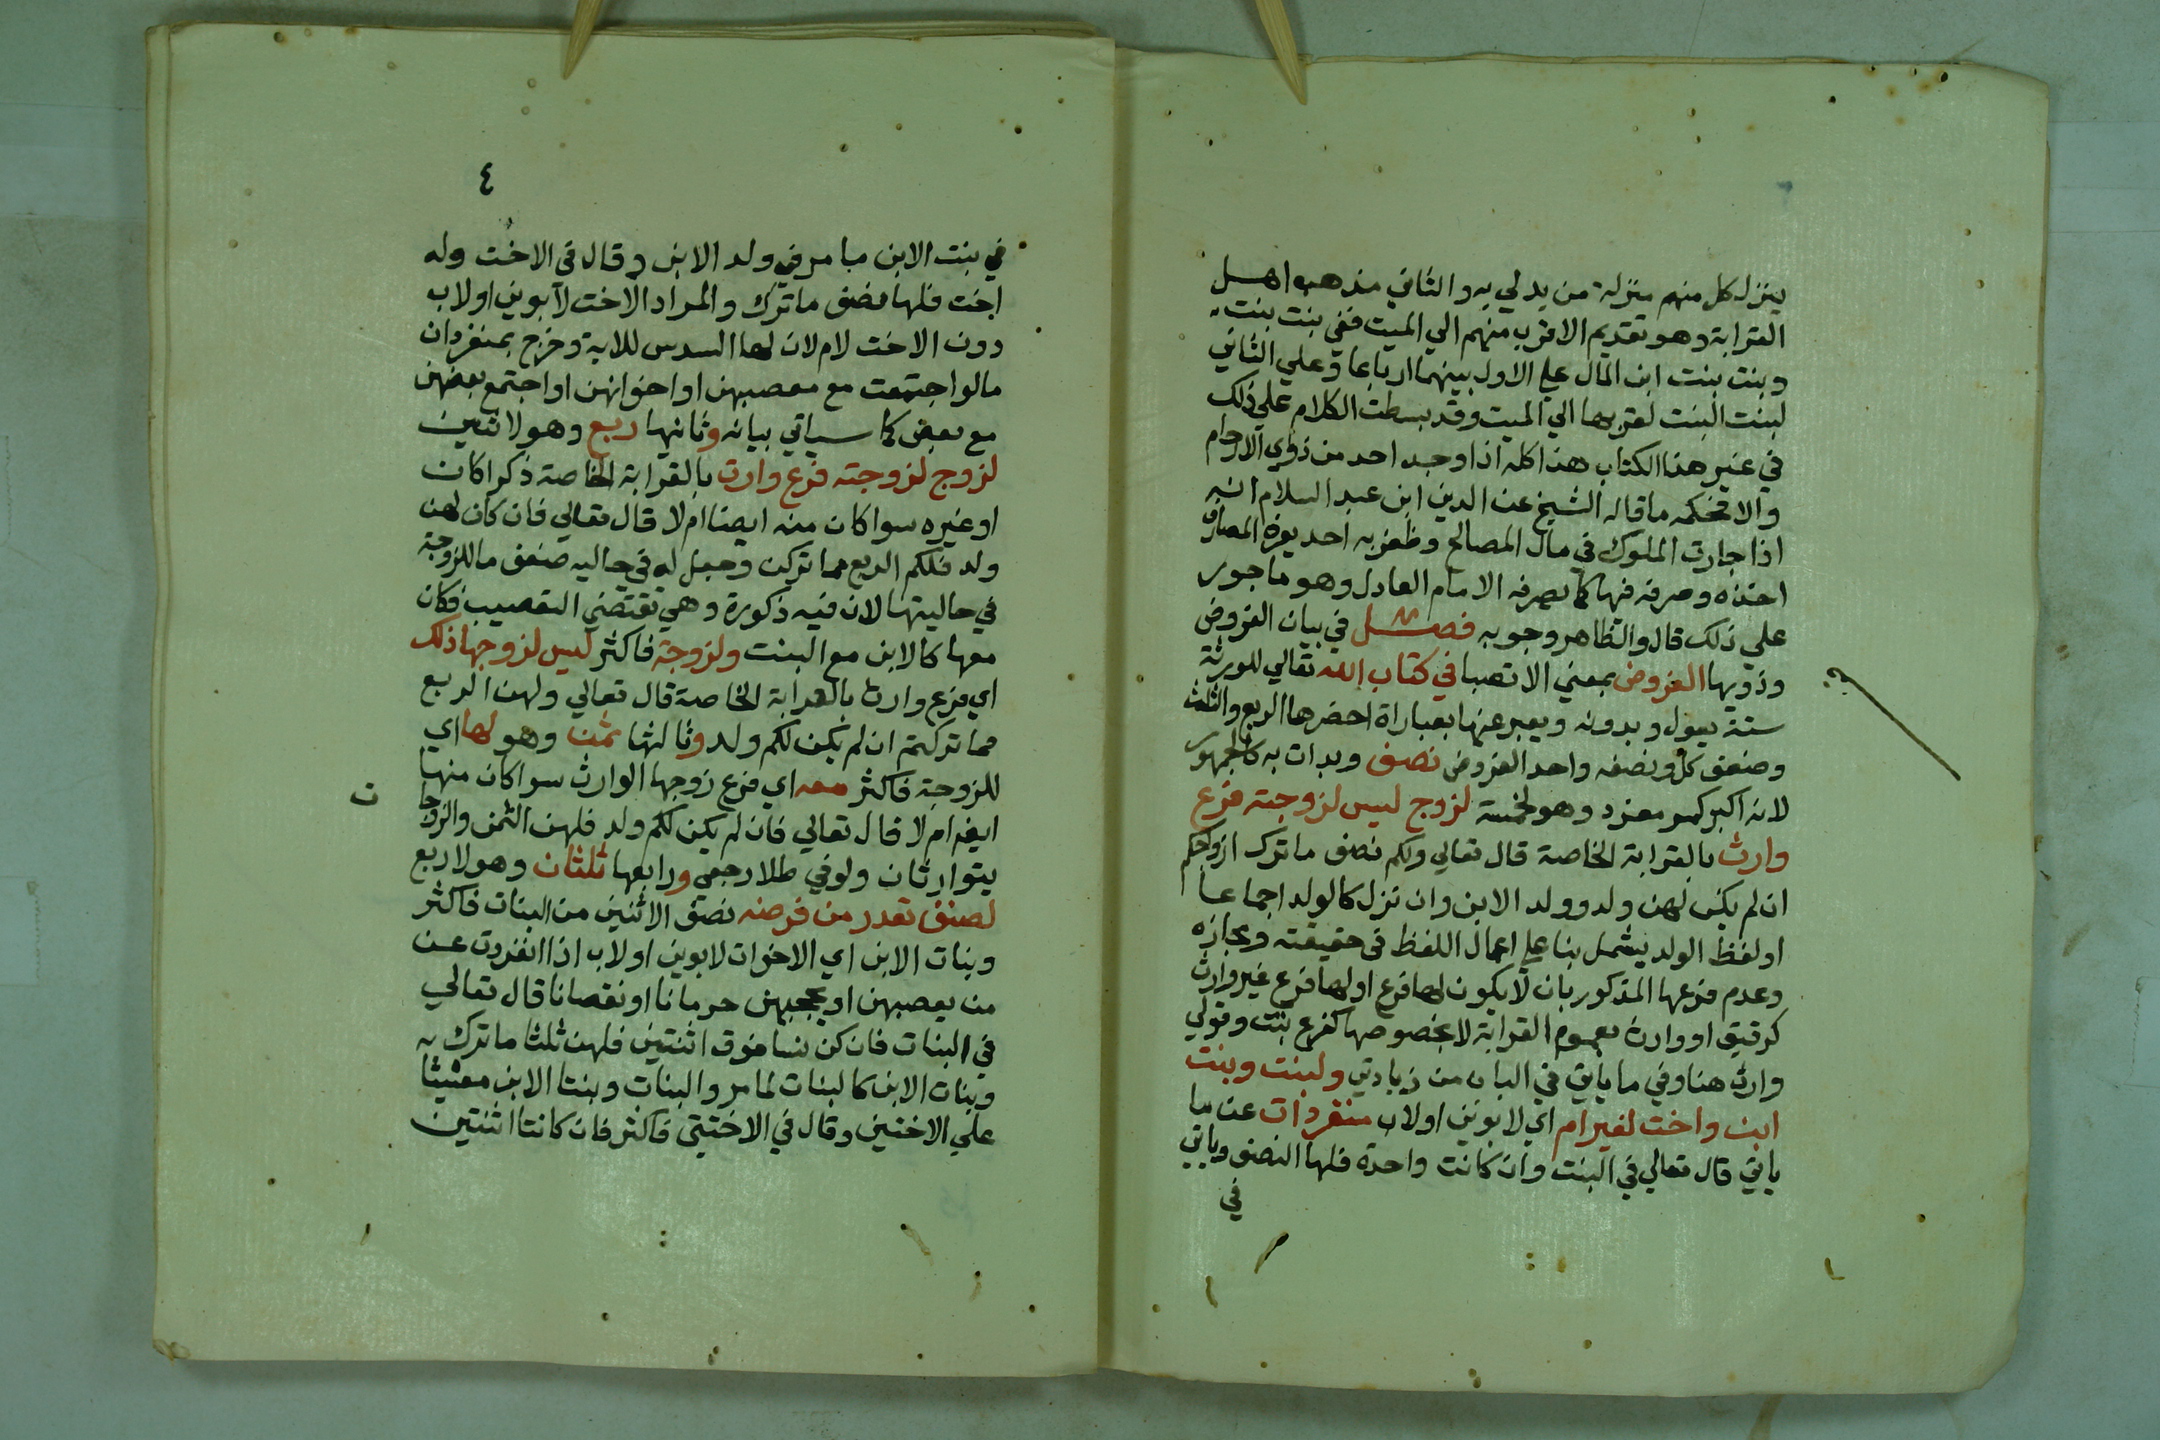 ينزل كل منهم منزلة من يدلي به والثاني مذهب اهل
القرابة وهو تقديم الاقرب منهم الي الميت ففي بنت بنت
وبنت بنت ابن المال علي الاول بينهما ارباعا وعلي الثاني
لبنت البنت لقربها الي الميت وقد بسطت الكلام علي ذلك
في غير هذا الكتاب هذا كله اذا وجد احد من ذوي الارحام
والا فحكمه ما قاله الشيخ عز الدين ابن عبد السلام انه
اذا جارت الملوك في مال المصالح وظفر به احد يعرف المصارف
اخذه وصرفه فيها كما يصرفه الامام العادل وهو ماجور
علي ذلك قال والظاهر وجوبه فصل في بيان الفروض
وذويها الفروض بمعني الانصبا في كتاب الله تعالي للورثة
ستة بعول وبدونه ويعبر عنها بعبارات اخصرها الربع والثلث
وضعف كل ونصفه واحد الفروض نصف وبدات به كالجمهور
لانه اكبر كسر مفرد وهو لخمسة لزوج ليس لزوجته فرع
وارث بالقرابة الخاصة قال تعالي ولكم نصف ما ترك ازواجكم
ان لم يكن لهن ولد وولد الابن وان نزل كالولد اجماعا
او لفظ الولد يشمل بنا علي اعمال اللفظ في حقيقته ومجازه
وعدم فرعها المذكور بان لا يكون لها فرع او لها فرع غير وارث
كرقيق او وارث بعموم القرابة لا بخصوصها كفرع بنت وقولي
وارث هنا وفي ما ياتي في الباب من زيادتي ولبنت وبنت
ابن واخت لغير ام اي لابوين او لاب منفردات عن ما
ياتي قال تعالي في البنت وان كانت واحدة فلها النصف وياتي
في
٤
في بنت الابن ما مر في ولد الابن وقال في الاخت وله
اخت فلها نصف ما ترك والمراد الاخت لابوين او لاب
دون الاخت لام لان لها السدس للاية وخرج بمنفردات
ما لو اجتمعت مع معصبهن او اخواتهن او اجتمع بعضهن
مع بعض كما سياتي بيانه وثانيها ربع وهو لاثنين
لزوج لزوجته فرع وارث بالقرابة الخاصة ذكرا كان
او غيره سوا كان منه ايضا ام لا قال تعالي فان كان لهن
ولد فلكم الربع مما تركن وجعل له في حاليه ضعف ما للزوجة
في حاليتها لان فيه ذكورة وهي تقتضي التعصيب فكان
معها كالابن مع البنت ولزوجة فاكثر ليس لزوجها ذلك
اي فرع وارث بالقرابة الخاصة قال تعالي ولهن الربع
مما تركتم ان لم يكن لكم ولد وثالثها ثمن وهو لها اي
للزوجة فاكثر معه اي فرع زوجها الوارث سوا كان منها
ن
ايضا ام لا قال تعالي فان لم يكن لكم ولد فلهن الثمن والزوجان
يتوارثان ولو في طلاق رجعي ورابعها ثلثان وهو لاربع
لصنف تعدد من فرضه نصف الاثنين من البنات فاكثر
وبنات الابن اي الاخوات لابوين او لاب اذا انفردت عن
من يعصبهن او يحجبهن حرمانا او نقصانا قال تعالي
في البنات فان كن نسا فوق اثنتين فلهن ثلثا ما ترك
وبنات الابن كالبنات لما مر والبنات وبنتا الابن مقيسا
علي الاختين وقال في الاختين فاكثر فان كانتا اثنتين